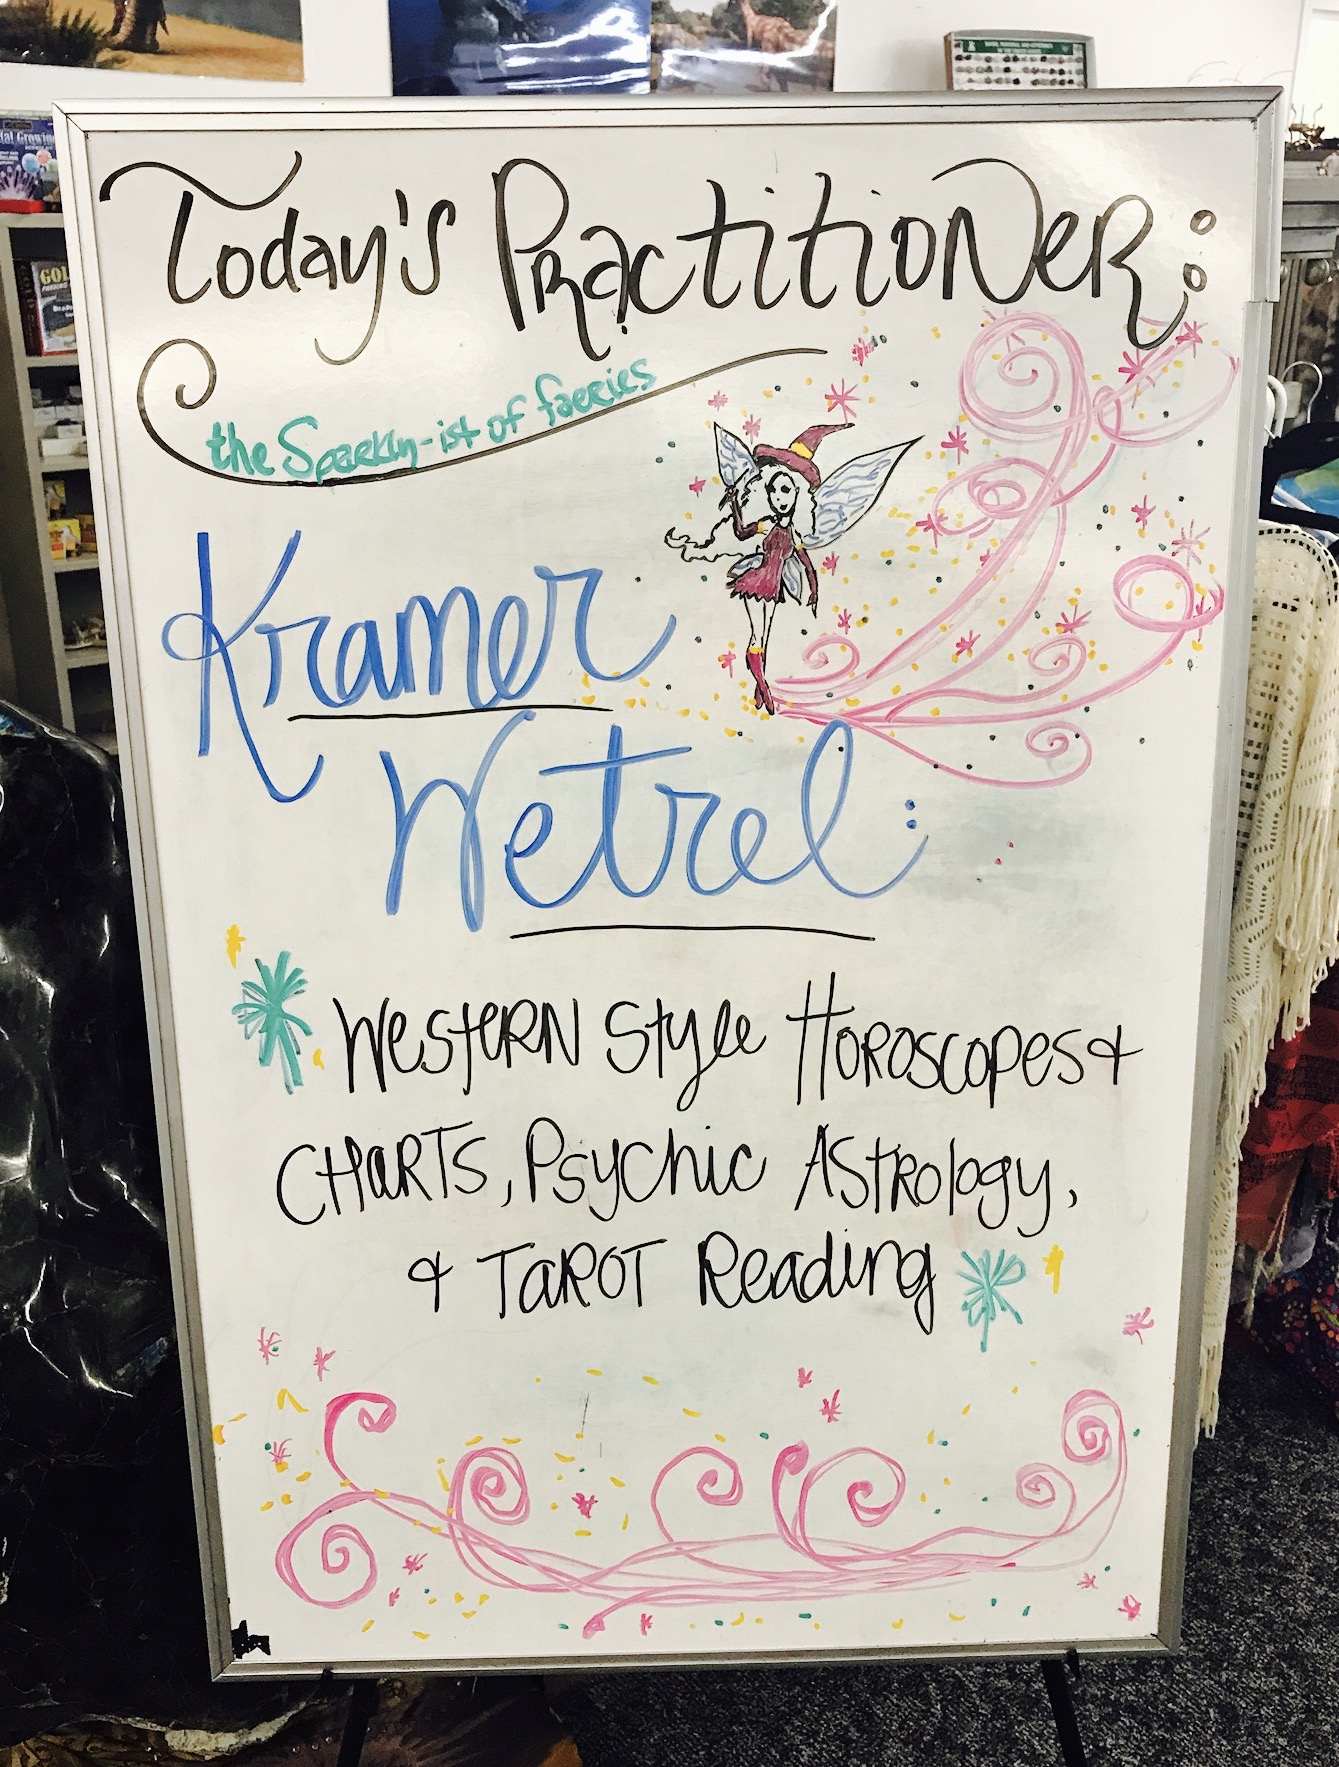 Today's Practitioner:
the Sparkly-ist of faeries
Kramer
Wetzel:
Western Style Horoscopes &
Charts, Psychic Astrology,
& Tarot Reading